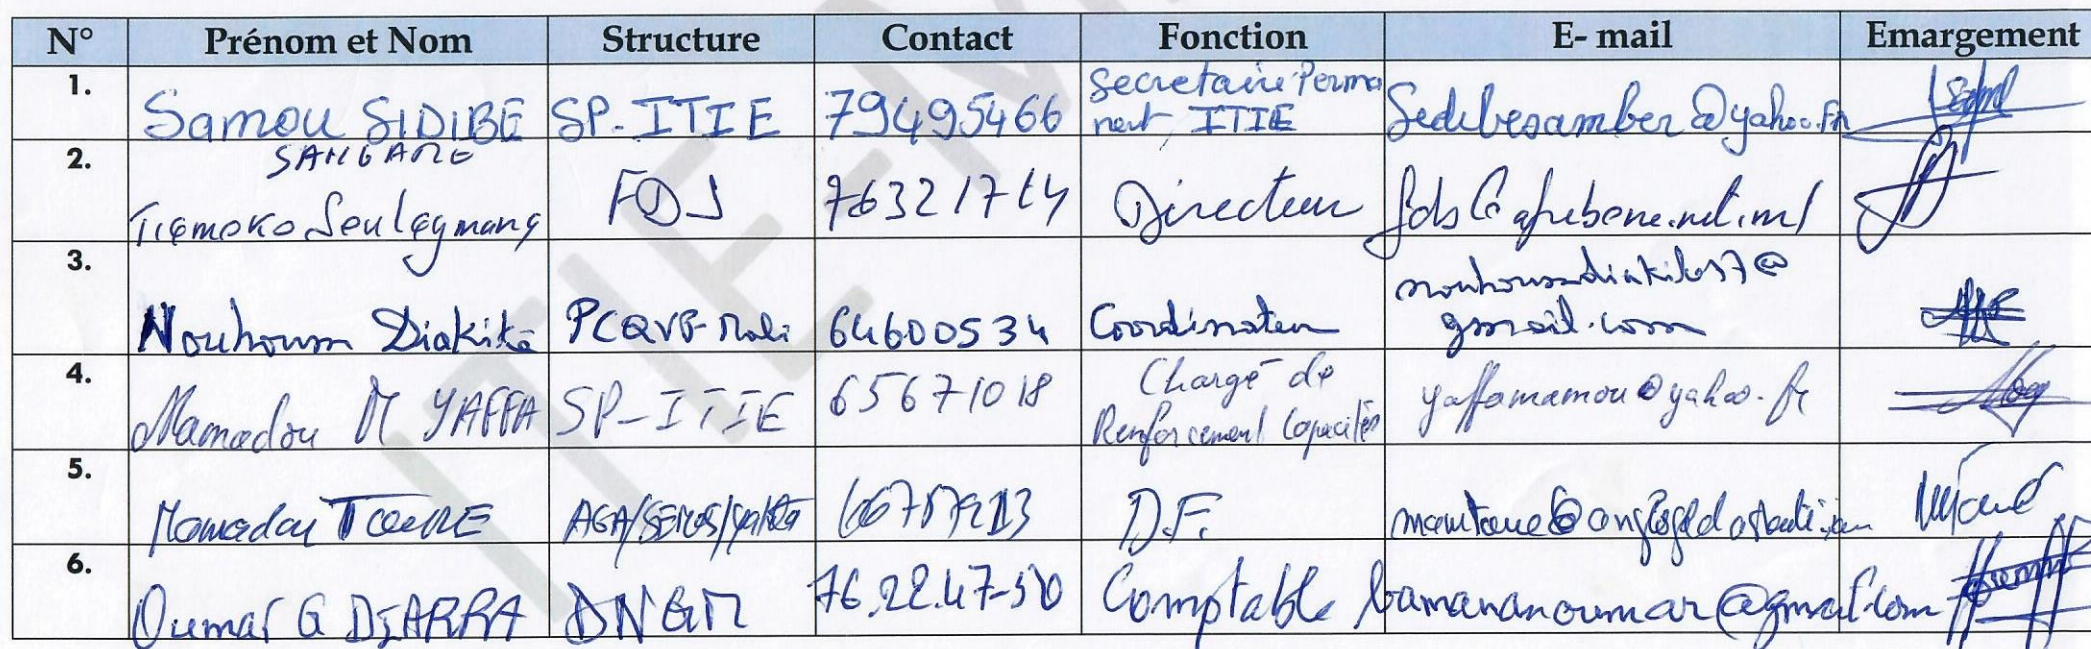 N° Prénom et Nom Structure Contact Fonction E- mail Emargement
1. Samou SIDIBE SP-ITIE 79495466 Secretaire Perma
nent ITIE Sedibesamber@yahoo.fr
2. SANGARE
Tiemoko Souleymane FDS 76321714 Directeur fds@afribone.net.ml
3. nouhoumdiakite57@
Nouhoum Diakité PCQVP-Mali 64600534 Coordinateur gmail.com
4. Mamadou M YAFFA SP-ITIE 65671018 Chargé de
Renforcement Capacités yaffamamou@yahoo.fr
5. Mamadou TOURE D.F.
6. Oumar G DIARRA DNGM 76.22.47-50 Comptable bamananoumar@gmail.com
ITIE-M